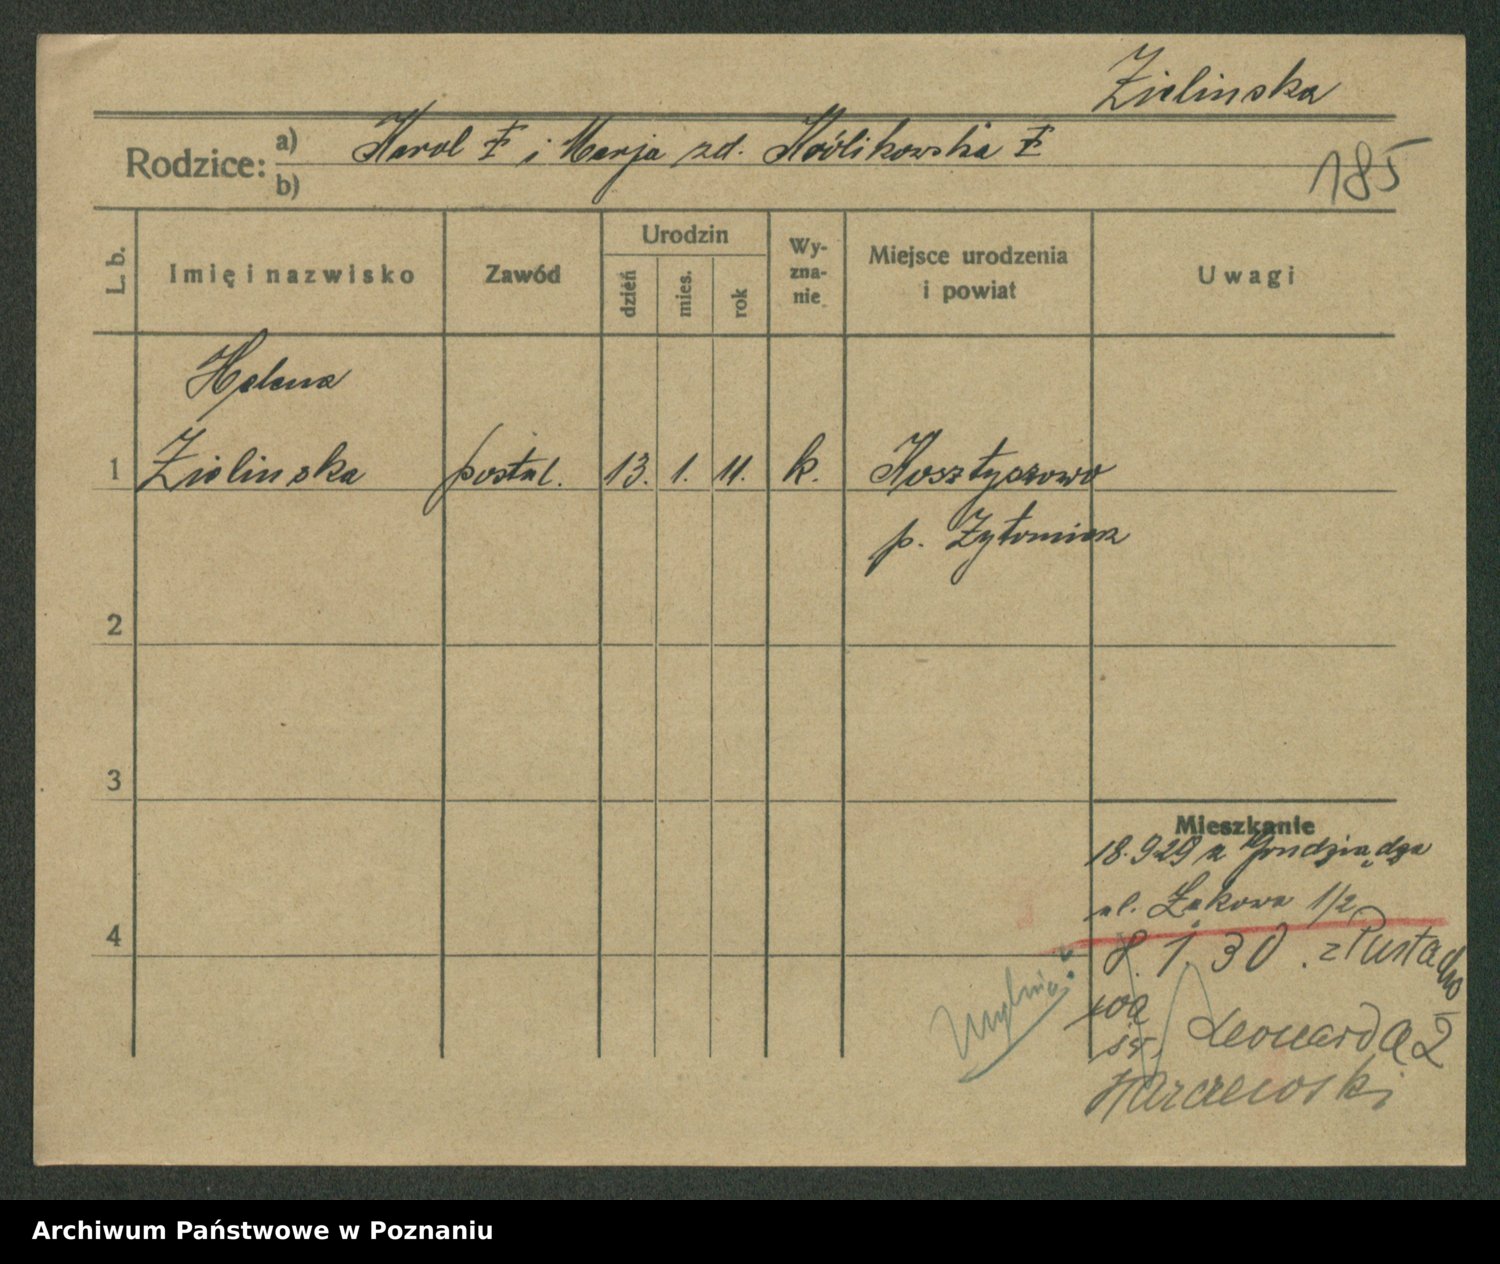 Zielinska
Rodzice: a) Karol ‡ i Marja zd. Królikowska ‡
b)
185
L. b.
Imię i nazwisko
Zawód
Urodzin
dzień
mies.
rok
Wy-
zna-
nie
Miejsce urodzenia
i powiat
Uwagi
Helena
1 Zielinska postul. 13. 1. 11. k. Kosztyczowo
p. Żytomierz
2
3
4
Mieszkanie
18.9 29 z Grudziądza
ul. Łąkowa 1/2
8. 1. 30. z Pustacho
wa
św. Leonarda 2
Harczewski
Archiwum Państwowe w Poznaniu